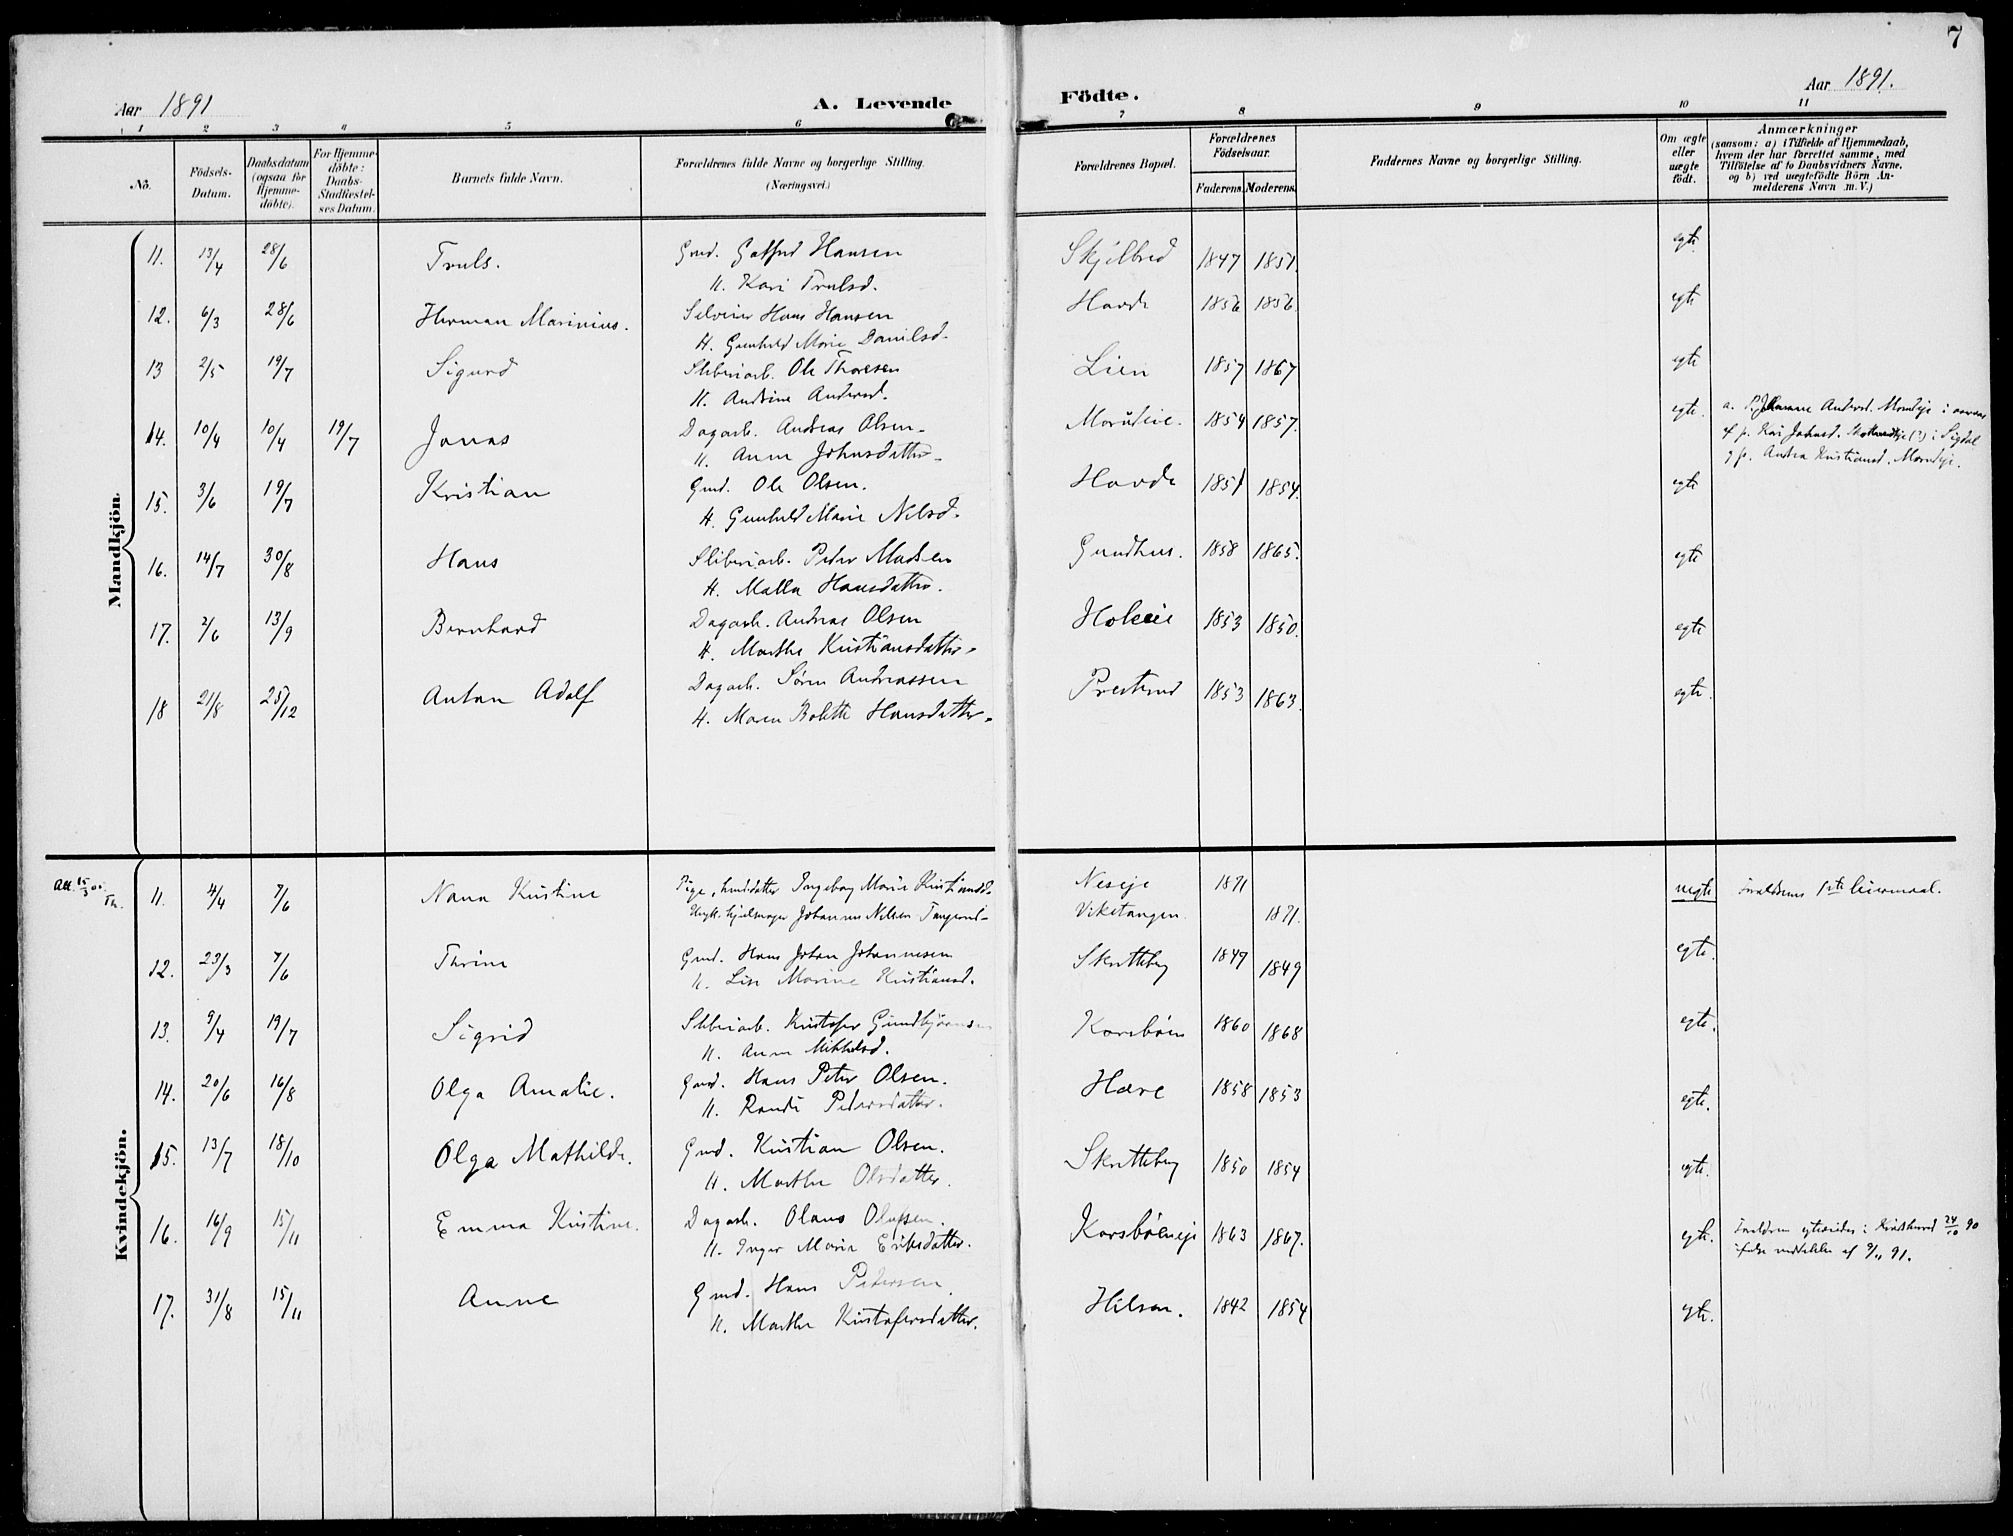 7
Aar 1891
A. Levende
Födte.
Aar 1891.
1 2 3 4 5 6 7 8 9 10 11
No.
Födsels-Datum.
Daabsdatum (ogsaa for Hjemme-döbte).
For Hjemme-döbte: Daabs-Stadfæstel-ses Datum.
Barnets fulde Navn.
Forældrenes fulde Navne og borgerlige Stilling. (Næringsvei.)
Forældrenes Bopæl.
Forældrenes Födselsaar.
Faderens. Moderens.
Faddernes Navne og borgerlige Stilling.
Om ægte eller uægte födt.
Anmærkninger (saasom: a) i Tilfælde af Hjemmedaab, hvem der har forrettet samme, med Tilföielse af to Daabsvidners Navne, og b) ved uægtefödte Börn An-melderens Navn m. V.)
Mandkjön.
11. 13/4 28/6 Truls. Gmd. Hansen 1847 1851. egte.
H. Kari Trulsd.
12. 6/3 28/6 Herman Marinius. Selveier Hans Hansen Hovde 1856 1856. egte
H. Gunhild Marie Danilsd.
13 2/5 19/7 Sigurd Sliberiarb. Ole Thoresen Lien 1857 1867 egte
H. Andrine Andersd.
14. 10/4 10/4 19/7 Jonas Dagarb. Andreas Olsen. 1854 1857. egte. a.
H. Anne Johnsdatter. af p. Kari Johnsd. (?) i Sigdal
og p. Andrea Kristiansd.
15. 3/6 19/7 Kristian Gmd. Ole Olsen. Hovde 1851 1854. egte
H. Gunhild Marie Nilsd.
16. 14/7 30/8 Hans Sliberiarb. Peder Madsen Gundhus. 1858 1865. egte
H. Malla Hansdatter.
17. 2/6 13/9 Bernhard Dagarb. Andreas Olsen Holeeie 1853 1850. egte
H. Marthe Kristiansdatter.
18 21/8 25/12 Anton Adolf Dagarb. Søren Andreassen 1853 1863. egte.
H. Maren Bolette Hansdatter.
Kvindekjön.
11. 4/4 7/6 Nana Kristine Pige, husdatter Ingeborg Marie Kristiansd. Neseje 1871 uegte Forældrenes 1ste leiermaal.
Ungk. Johannes Nilsen Viketangen 1871.
12. 23/3 7/6 Thrine Gmd. Hans Johan Johannesen Skretteberg 1849 1849 egte.
H. Lise Marine Kristiansd.
13. 9/4 19/7 Sigrid Sliberiarb. Kristofer Gundbjørnsen Korsbøen 1860 1868 egte.
H. Anne Mikkelsd.
14. 20/6 16/8 Olga Amalie. Gmd. Hans Peter Olsen. Hære 1858 1853 egte.
H. Randi Pedersdatter.
15. 13/7 18/10 Olga Mathilde. Gmd. Kristian Olsen. Skretteberg 1850 1854 egte.
H. Marthe Olsdatter.
16. 16/9 15/11 Emma Kristine. Dagarb. Olaus Olufsen. Korsbøeneje 1863 1867. egte. Forældrene egteviedes i 24/10 90
H. Inger Marie Eriksdatter. ifølge meddelelse af 9/11 91.
17. 31/8 15/11 Anne Gmd. Hans Pedersen Hilsen. 1842 1854 egte.
H. Marthe Kristofersdatter.